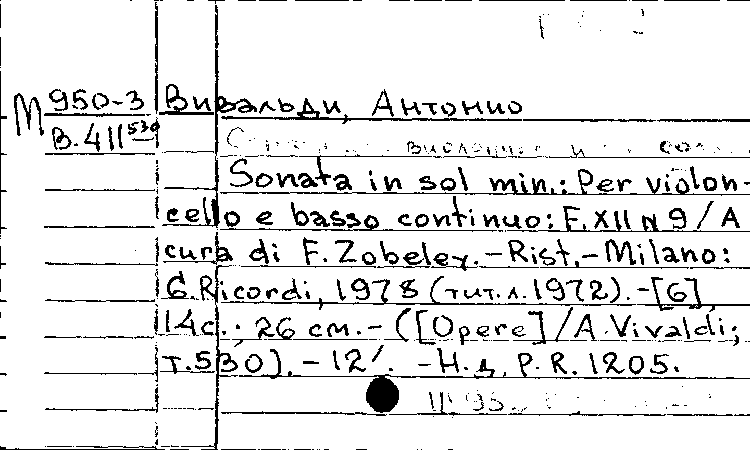 М 950-3 Вивальди, Антонио
В.411 530
виолончели и
Sonata in sol min.: Per violon-
cello e basso continuo: F. XII N 9 / A
cura di F. Zobeley. - Rist. - Milano:
G. Ricordi, 1978 (тит. л. 1972). - [6],
14 с.; 26 см. - ([Opere] / A. Vivaldi;
т. 530). - 12'. - Н. д. P. R. 1205.